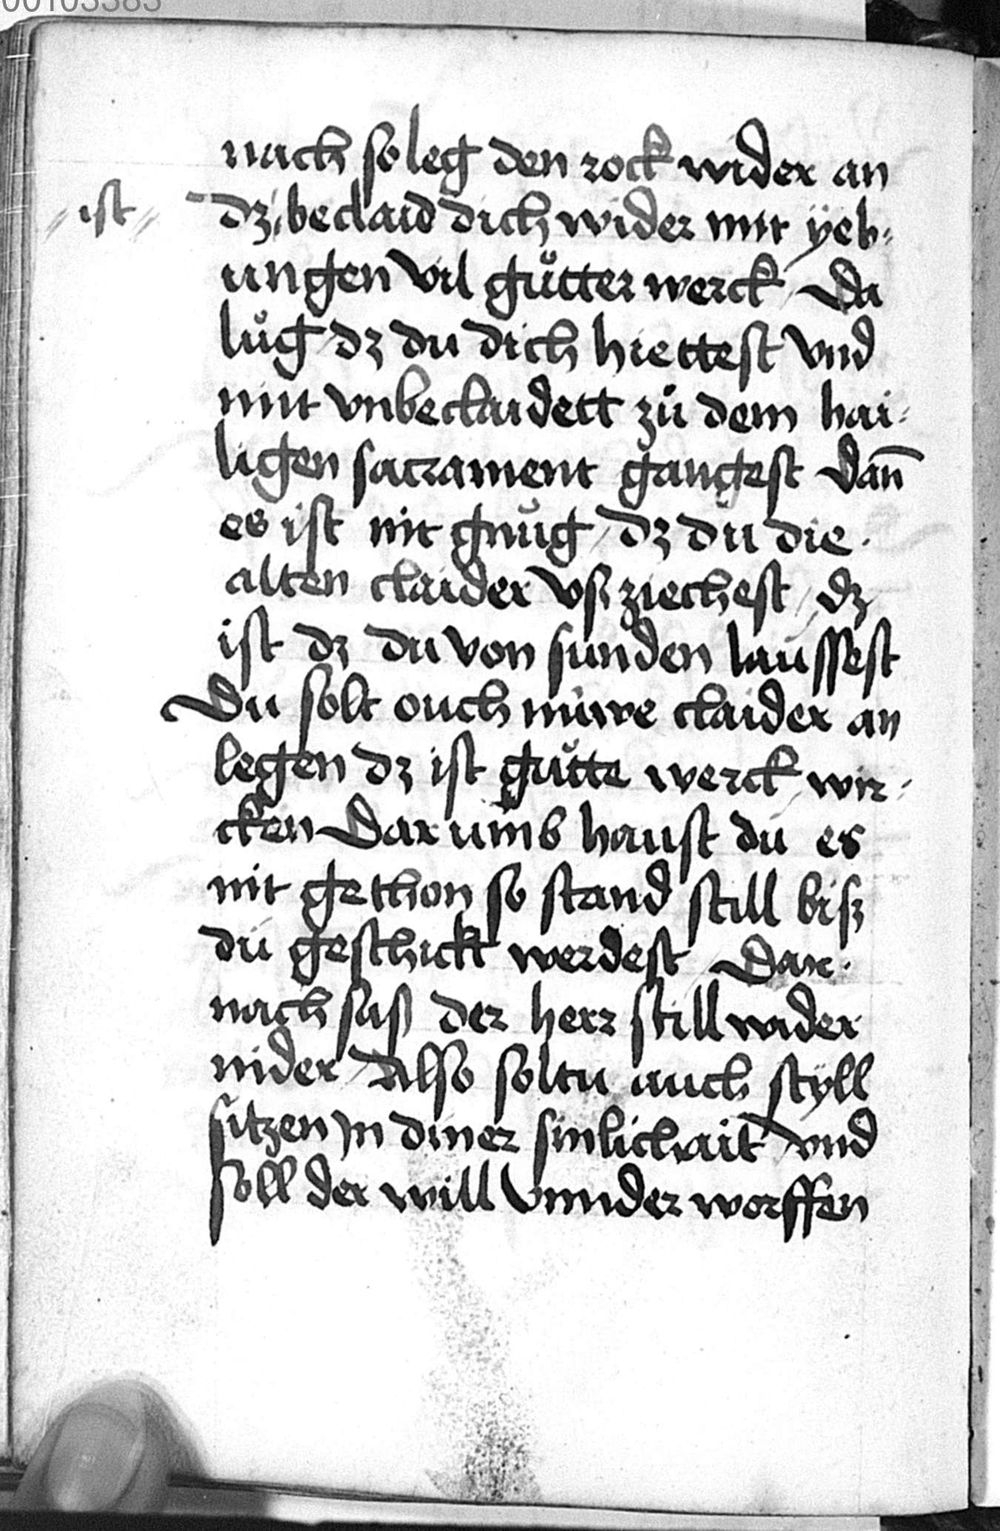 00103383
nach so leg den rock wider an
// ist // dz beclaid dich wider mit yeb-
ungen vil gůtter werck / Da
lůg / dz du dich hiettest vnd
nit vnbeclaidett zů dem hai-
ligen sacrament gangest dan̄
es ist nit gnůg / dz du die
alten claider vsz ziechest / dz
ist dz du von sunden laussest
Du solt ouch nüwe claider an
legen dz ist gůtte werck wir-
cken Darumb haust du es
nit gethon so stand still bisz
du geschickt werdest Dar-
nach sasz der herr still wider
nider / Also soltu auch styll
sitzen jn diner sinlichait vnd
soll der will vnnder worffen